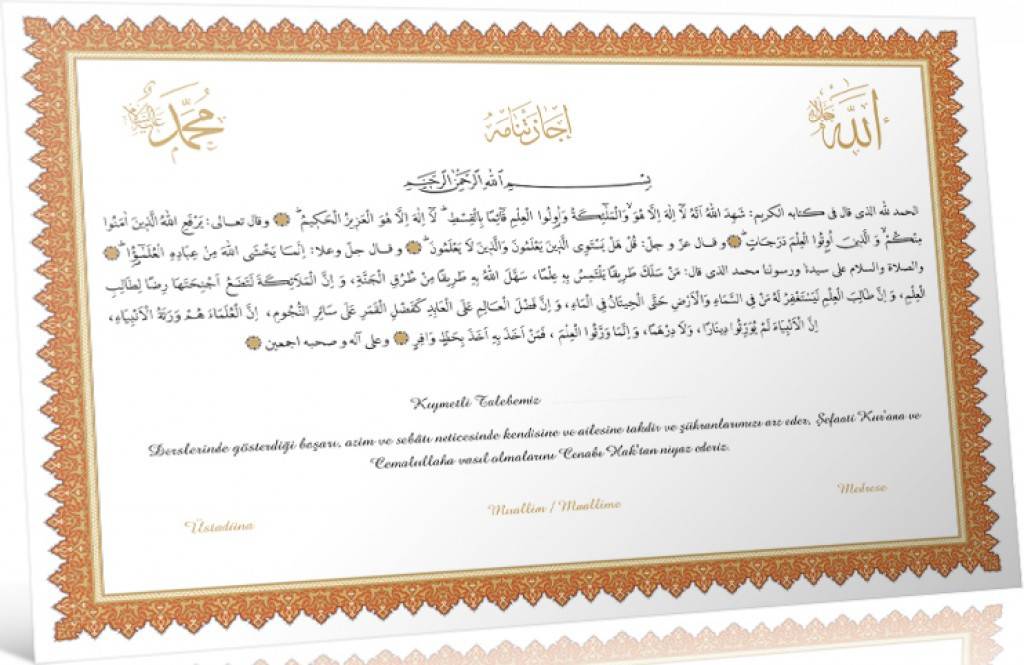 الله جل جلاله
اجازتنامه
محمد عليه السلام
بِسْمِ اللهِ الرَّحْمٰنِ الرَّحِيمِ
الحمد لله الذى قال فى كتابه الكريم: شَهِدَ اللهُ اَنَّهُ لَا اِلٰهَ اِلَّا هُوَ وَالْمَلٰٓئِكَةُ وَاُولُوا الْعِلْمِ قَائِمًا بِالْقِسْطِ لَا اِلٰهَ اِلَّا هُوَ الْعَزِيزُ الْحَكِيمُ وقال تعالى: يَرْفَعِ اللهُ الَّذِينَ اٰمَنُوا
مِنْكُمْ وَالَّذِينَ اُوتُوا الْعِلْمَ دَرَجَاتٍ و قال عز و جل: قُلْ هَلْ يَسْتَوِى الَّذِينَ يَعْلَمُونَ وَالَّذِينَ لَا يَعْلَمُونَ و قال جل وعلا: اِنَّمَا يَخْشَى اللهَ مِنْ عِبَادِهِ الْعُلَمٰٓؤُا
والصلاة والسلام على سيدنا ورسولنا محمد الذى قال: مَنْ سَلَكَ طَرِيقًا يَلْتَمِسُ بِهِ عِلْمًا، سَهَّلَ اللهُ بِهِ طَرِيقًا مِنْ طُرُقِ الْجَنَّةِ، وَ اِنَّ الْمَلَائِكَةَ لَتَضَعُ اَجْنِحَتَهَا رِضًا لِطَالِبِ
الْعِلْمِ، وَ اِنَّ طَالِبَ الْعِلْمِ لَيَسْتَغْفِرُ لَهُ مَنْ فِي السَّمَاءِ وَالْاَرْضِ حَتَّى الْحِيتَانُ فِي الْمَاءِ، وَ اِنَّ فَضْلَ الْعَالِمِ عَلَى الْعَابِدِ كَفَضْلِ الْقَمَرِ عَلَى سَائِرِ النُّجُومِ، اِنَّ الْعُلَمَاءَ هُمْ وَرَثَةُ الْاَنْبِيَاءِ،
اِنَّ الْاَنْبِيَاءَ لَمْ يُوَرِّثُوا دِينَارًا، وَلَا دِرْهَمًا، وَ اِنَّمَا وَرَّثُوا الْعِلْمَ ، فَمَنْ اَخَذَ بِهِ اَخَذَ بِحَظٍّ وَافِرٍ وعلى آله و صحبه اجمعين
Kıymetli Talebemiz
Derslerinde gösterdiği başarı, azim ve sebâtı neticesinde kendisine ve ailesine takdir ve şükranlarımızı arz eder, Şefaati Kur'ana ve
Cemalullaha vasıl olmalarını Cenabı Hak'tan niyaz ederiz.
Üstadüna
Muallim / Muallime
Medrese